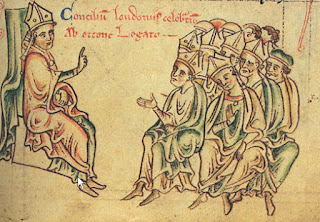 Conciliū londoniis celebratū
Ab ottone Legato